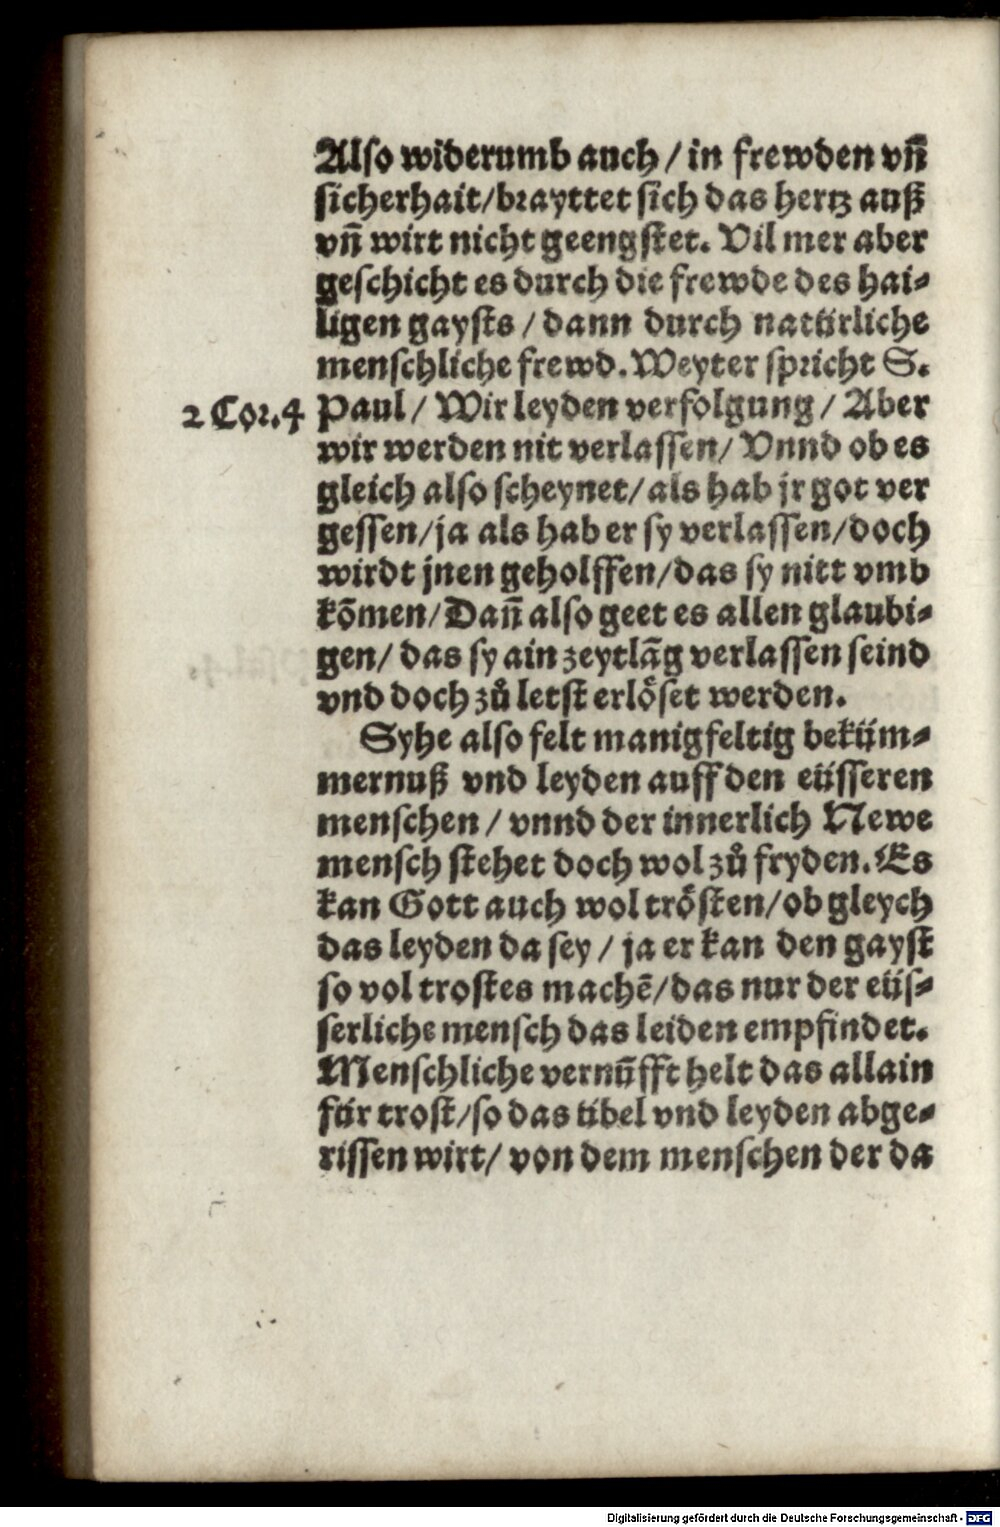 Also widerumb auch / in frewden vñ
sicherhait/brayttet sich das hertz auß
vñ wirt nicht geengstet. Vil mer aber
geschicht es durch die frewde des hai⸗
ligen gaysts / dann durch natürliche
menschliche frewd. Weyter spricht S.
2 Cor. 4 Paul / Wir leyden verfolgung / Aber
wir werden nit verlassen/ Vnnd ob es
gleich also scheynet/ als hab jr got ver
gessen/ja als hab er sy verlassen/doch
wirdt jnen geholffen/das sy nitt vmb
kõmen/Dañ also geet es allen glaubi⸗
gen/ das sy ain zeytlãg verlassen seind
vnd doch zů letst erlöset werden.
Syhe also felt manigfeltig beküm⸗
mernuß vnd leyden auff den eüsseren
menschen / vnnd der innerlich Newe
mensch stehet doch wol zů fryden. Es
kan Gott auch wol trösten/ob gleych
das leyden da sey / ja er kan den gayst
so vol trostes machẽ/das nur der eüs⸗
serliche mensch das leiden empfindet.
Menschliche vernũfft helt das allain
für trost/so das übel vnd leyden abge⸗
rissen wirt/ von dem menschen der da
Digitalisierung gefördert durch die Deutsche Forschungsgemeinschaft - DFG